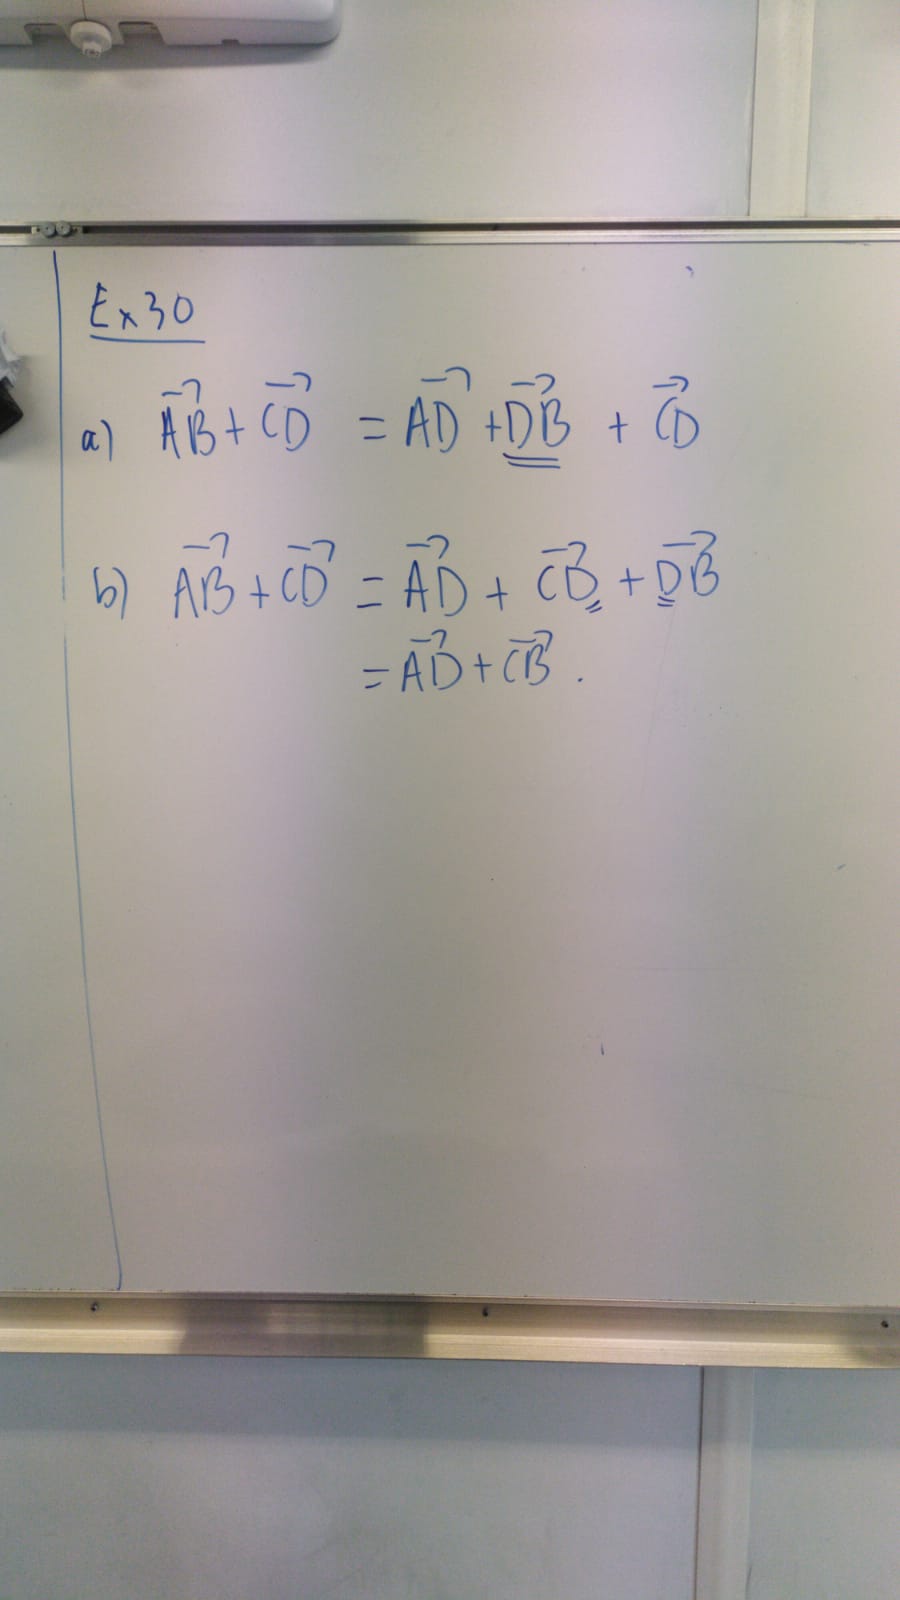 Ex30
a) $\overrightarrow{AB} + \overrightarrow{CD} = \overrightarrow{AD} + \overrightarrow{DB} + \overrightarrow{CD}$
b) $\overrightarrow{AB} + \overrightarrow{CD} = \overrightarrow{AD} + \overrightarrow{CD} + \overrightarrow{DB}$
$= \overrightarrow{AD} + \overrightarrow{CB}$.